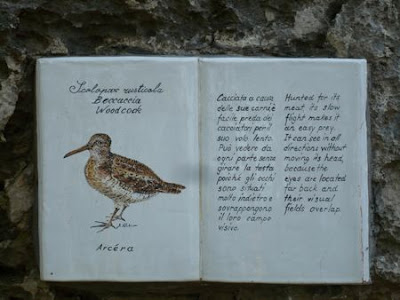 Scolopax rusticola
Beccaccia
Woodcock
Arcéra
Cacciata a causa
delle sue carni è
facile preda dei
cacciatori per il
suo volo lento.
Può vedere da
ogni parte senza
girare la testa
poiché gli occhi
sono situati
molto indietro e
sovrappongono
il loro campo
visivo.
Hunted for its
meat, its slow
flight makes it
an easy prey.
It can see in all
directions without
moving its head,
because the
eyes are located
far back and
their visual
fields overlap.